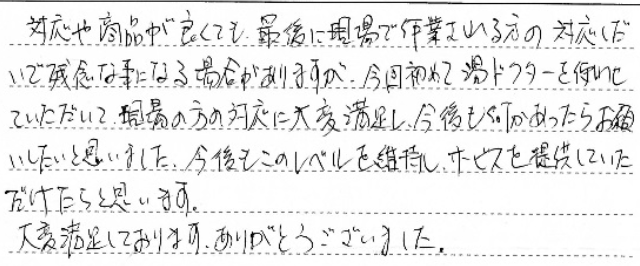 対応や商品が良くても、最後に現場で作業される方の対応しだ
いで残念な事になる場合がありますが、今回初めて湯ドクターを使わせ
ていただいて、現場の方の対応に大変満足し、今後も何かあったらお願
いしたいと思いました。今後もこのレベルを維持し、サービスを提供していた
だけたらと思います。
大変満足しております。ありがとうございました。